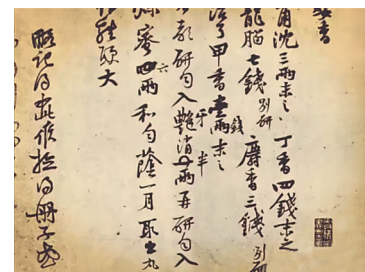 嬰香
角沈三兩末之 丁香四錢末之
龍腦七錢別研 麝香三錢別研
治了甲香壹兩錢末之
都研勻入牙艷消一兩半再研勻入
煉蜜四六兩和勻蔭一月取出丸
作雞頭大
略記得如此候檢得冊子或